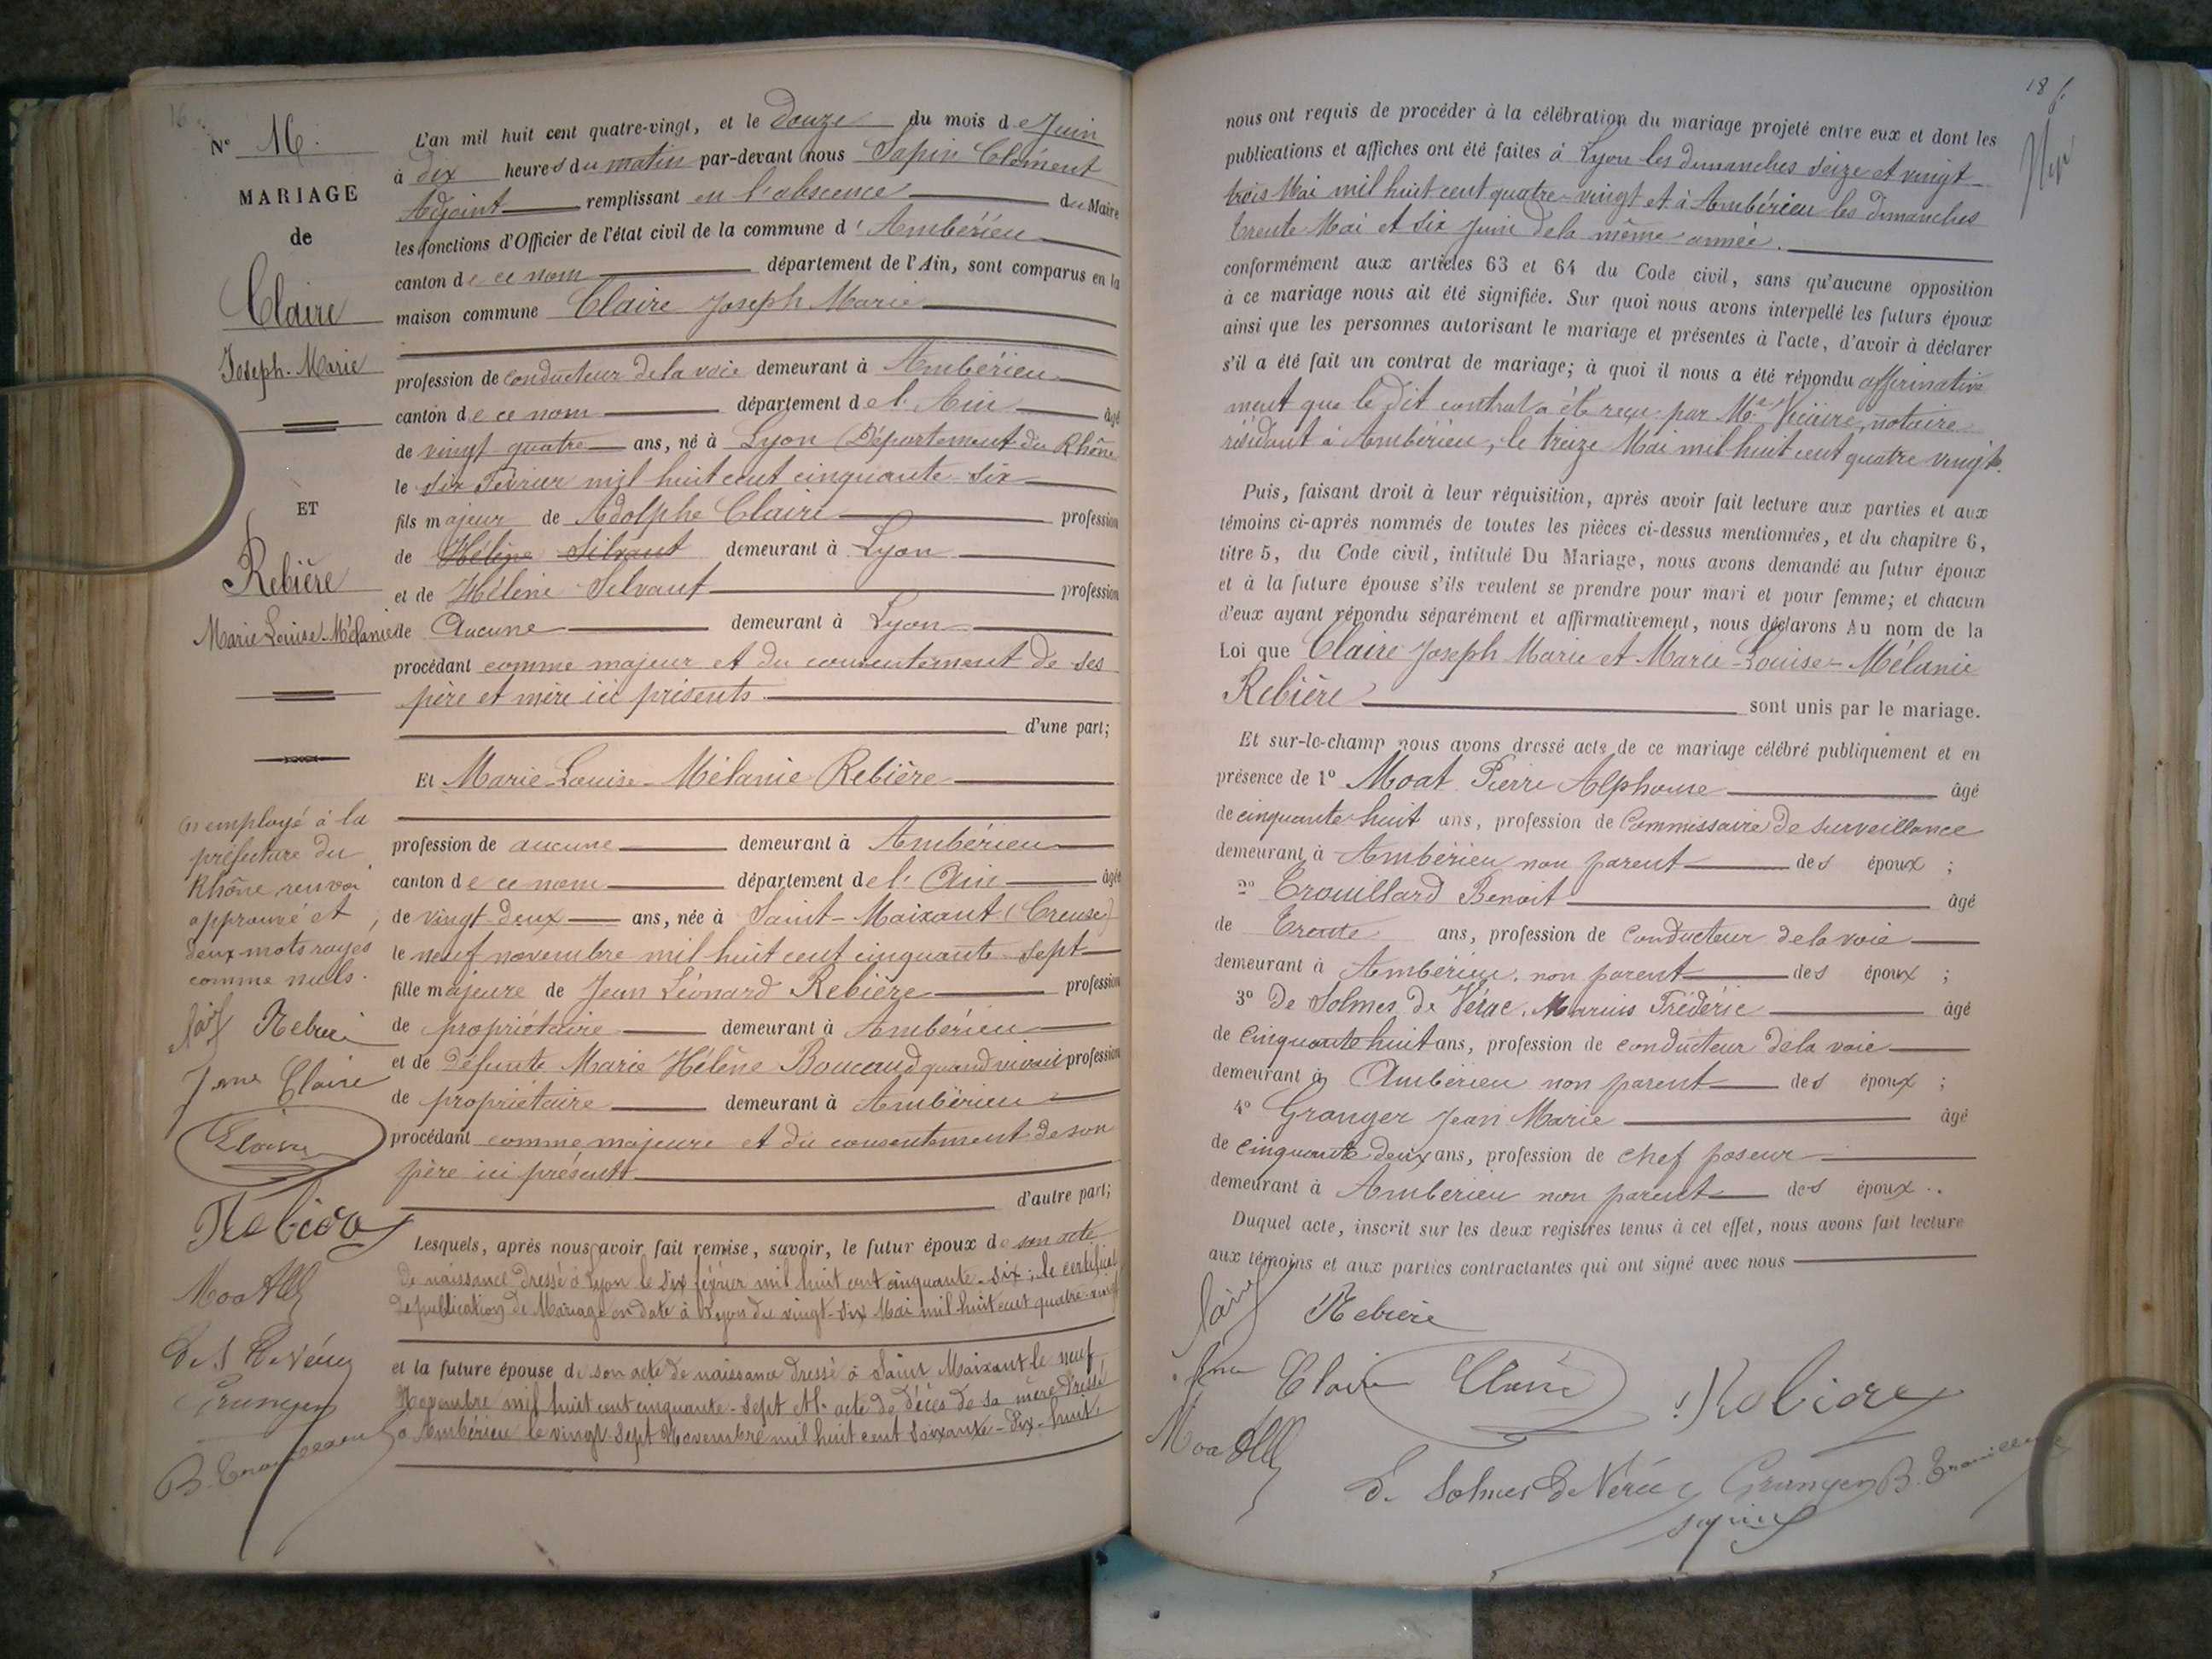 16
N° 16.
MARIAGE
de
Claire
Joseph-Marie
ET
Rebière
Marie Louise-Mélanie
(1) employé à la
préfecture du
Rhône renvoi
approuvé et
deux mots rayés
comme nuls.
Rebiere
Claire
Claire
Rebiere
Moat
Granger
L'an mil huit cent quatre-vingt, et le Douze du mois de Juin
à dix heures du matin par-devant nous Sapin Clément
Adjoint remplissant en l'abscence du Maire
les fonctions d'Officier de l'état civil de la commune d'Ambérieu
canton de ce nom département de l'Ain, sont comparus en la
maison commune Claire Joseph Marie
profession de conducteur de la voie demeurant à Ambérieu
canton de ce nom département de l'Ain âgé
de vingt quatre ans, né à Lyon (Département du Rhône
le six Février mil huit cent cinquante-six
fils majeur de Adolphe Claire profession
de Hélène Silvant demeurant à Lyon
et de Hélène Silvant profession
de Aucune demeurant à Lyon
procédant comme majeur et du consentement de ses
père et mère ici présents
d'une part;
Et Marie-Louise-Mélanie Rebière
profession de aucune demeurant à Ambérieu
canton de ce nom département de l'Ain âgée
de vingt-deux ans, née à Saint-Maixant (Creuse)
le neuf novembre mil huit cent cinquante-sept
fille majeure de Jean Léonard Rebière profession
de propriétaire demeurant à Ambérieu
et de défunte Marie Hélène Boucaud quand vivait profession
de propriétaire demeurant à Ambérieu
procédant comme majeure et du consentement de son
père ici présent
d'autre part;
Lesquels, après nous avoir fait remise, savoir, le futur époux de son acte
de naissance dressé à Lyon le six février mil huit cent cinquante-six; le certificat
de publication de Mariage en date à Lyon du vingt-six Mai mil huit cent quatre-vingt
et la future épouse de son acte de naissance dressé à Saint Maixant le neuf
Novembre mil huit cent cinquante-sept et l'acte de décès de sa mère dressé
à Ambérieu le vingt-sept Novembre mil huit cent soixante-dix-huit
nous ont requis de procéder à la célébration du mariage projeté entre eux et dont les
publications et affiches ont été faites à Lyon les dimanches seize et vingt
trois Mai mil huit cent quatre-vingt et à Ambérieu les dimanches
trente Mai et six Juin de la même année.
conformément aux articles 63 et 64 du Code civil, sans qu'aucune opposition
à ce mariage nous ait été signifiée. Sur quoi nous avons interpellé les futurs époux
ainsi que les personnes autorisant le mariage et présentes à l'acte, d'avoir à déclarer
s'il a été fait un contrat de mariage; à quoi il nous a été répondu affirmative
ment que le dit contrat a été reçu par Me notaire
résidant à Ambérieu, le treize Mai mil huit cent quatre vingt.
Puis, faisant droit à leur réquisition, après avoir fait lecture aux parties et aux
témoins ci-après nommés de toutes les pièces ci-dessus mentionnées, et du chapitre 6,
titre 5, du Code civil, intitulé Du Mariage, nous avons demandé au futur époux
et à la future épouse s'ils veulent se prendre pour mari et pour femme; et chacun
d'eux ayant répondu séparément et affirmativement, nous déclarons Au nom de la
Loi que Claire Joseph Marie et Marie-Louise-Mélanie
Rebière sont unis par le mariage.
Et sur-le-champ nous avons dressé acte de ce mariage célébré publiquement et en
présence de 1° Moat Pierre Alphonse âgé
de cinquante-huit ans, profession de Commissaire de surveillance
demeurant à Ambérieu non parent des époux;
2° Trouillard Benoit âgé
de Trente ans, profession de Conducteur de la voie
demeurant à Ambérieu, non parent des époux;
3° De Solmes de Vérac, Marius Frédéric âgé
de Cinquante huit ans, profession de conducteur de la voie
demeurant à Ambérieu non parent des époux;
4° Granger Jean Marie âgé
de Cinquante deux ans, profession de chef poseur
demeurant à Ambérieu non parent des époux.
Duquel acte, inscrit sur les deux registres tenus à cet effet, nous avons fait lecture
aux témoins et aux parties contractantes qui ont signé avec nous
Rebiere
Claire Claire Rebiere
Moat
De Solmes De Vérac Granger B. Trouillard
Sapin